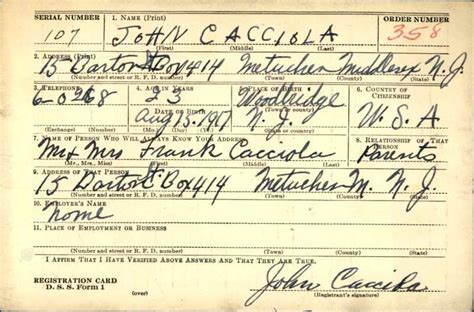 SERIAL NUMBER 1. NAME (Print) ORDER NUMBER
107 JOHN CACCIOLA 358
(First) (Middle) (Last)
2. ADDRESS (Print)
15 Box 414 Metuchen Middlesex N. J.
(Number and street or R. F. D. number) (Town) (County) (State)
3. TELEPHONE 4. AGE IN YEARS 5. PLACE OF BIRTH 6. COUNTRY OF CITIZENSHIP
6-0268 23 Woodbridge
DATE OF BIRTH (Town or county)
Aug 15, 1917 N. J. U. S. A
(Exchange) (Number) (Mo.) (Day) (Yr.) (State or country)
7. NAME OF PERSON WHO WILL ALWAYS KNOW YOUR ADDRESS 8. RELATIONSHIP OF THAT PERSON
Mr & Mrs Frank Cacciola Parents
(Mr., Mrs., Miss) (First) (Middle) (Last)
9. ADDRESS OF THAT PERSON
15 Box 414 Metuchen M. N. J.
(Number and street or R. F. D. number) (Town) (County) (State)
10. EMPLOYER'S NAME
none
11. PLACE OF EMPLOYMENT OR BUSINESS
(Number and street or R. F. D. number) (Town) (County) (State)
I AFFIRM THAT I HAVE VERIFIED ABOVE ANSWERS AND THAT THEY ARE TRUE.
REGISTRATION CARD
D. S. S. Form 1 (over) John Cacciola
(Registrant's signature)